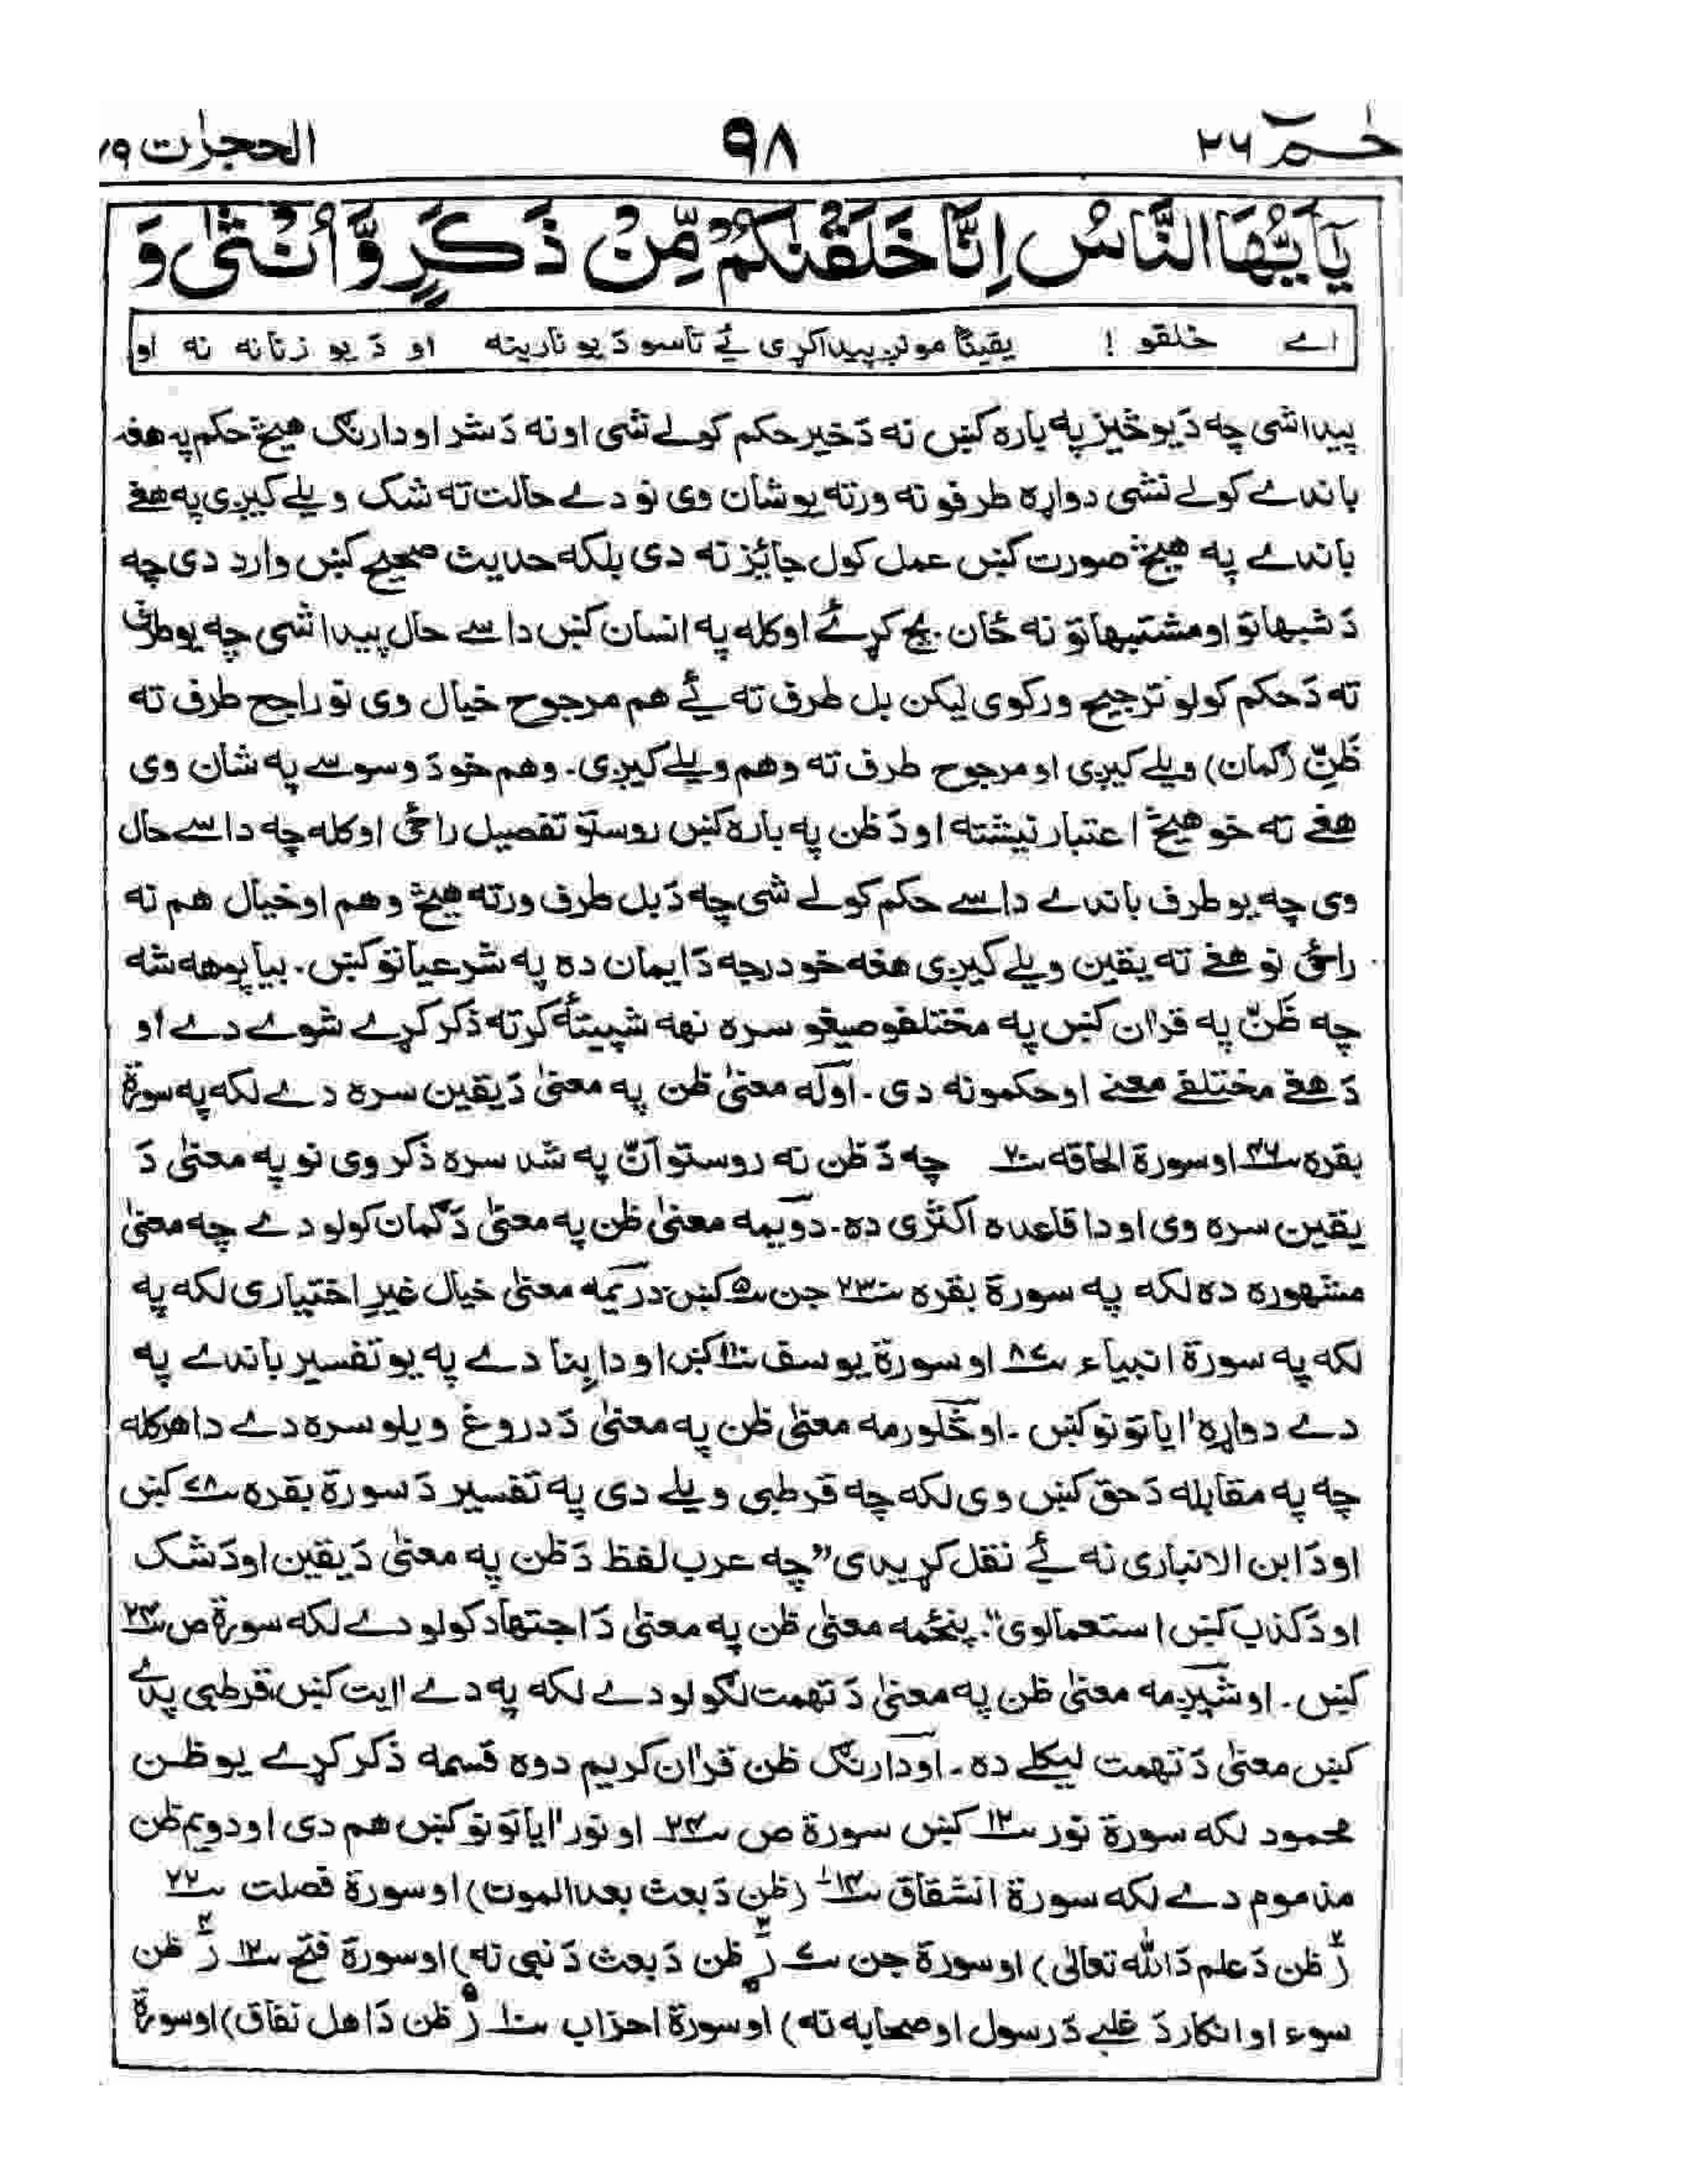 حٰـم ٢٦ ٩٨ الحجرٰت ٤٩
يٰٓاَيُّهَا النَّاسُ اِنَّا خَلَقْنٰكُمْ مِّنْ ذَكَرٍ وَّاُنْثٰى وَ
اے خلقو ! يقينًا مونږ پيدا کړى ئے تاسو دَ يو نارينه او دَ يو زنانه نه او
پيدا شى چه دَ يو څيز په باره کښ نه دَ خير حکم کولے شى او نه دَ شر او دارنګ هيڅ حکم په هغه
باندے کولے نشى دواړه طرفونه ورته يو شان وى نو دے حالت ته شک ويلے کيږى په هغے
باندے په هيڅ صورت کښ عمل کول جائز نه دى بلکه حديث صحيح کښ وارد دى چه
دَ شبهاتو او مشتبهاتو نه ځان بچ کړئ او کله په انسان کښ داسے حال پيدا شى چه يو طرف
ته دَ حکم کولو ترجيح ورکوى ليکن بل طرف ته ئے هم مرجوح خيال وى نو راجح طرف ته
ظَنّ (ګمان) ويلے کيږى او مرجوح طرف ته وهم ويلے کيږى. وهم خو دَ وسوسے په شان وى
هغے ته خو هيڅ اعتبار نيشته او دَ ظن په باره کښ روستو تفصيل راځى او کله چه داسے حال
وى چه يو طرف باندے داسے حکم کولے شى چه دَ بل طرف ورته هيڅ وهم او خيال هم نه
راځى نو هغے ته يقين ويلے کيږى هغه خو درجه دَ ايمان ده په شرعياتو کښ. بيا پوهه شه
چه ظَنّ په قراٰن کښ په مختلفو صيغو سره نهه شپيتهٔ کرته ذکر کړے شوے دے او
دَ هغے مختلفے معنے او حکمونه دى. اوله معنىٰ ظن په معنىٰ دَ يقين سره دے لکه په سورة
بقره ٤٦ او سورة الحاقه ٢٠ چه دَ ظن نه روستو اَنّ په شد سره ذکر وى نو په معنىٰ دَ
يقين سره وى او دا قاعده اکثرى ده. دويمه معنىٰ ظن په معنىٰ دَ ګمان کولو دے چه معنىٰ
مشهوره ده لکه په سورة بقره ٢٣٠ جن ٥ کښ دريمه معنىٰ خيال غير اختيارى لکه په
لکه په سورة انبياء ٨٧ او سورة يوسف ١١٠ کښ او دا بنا دے په يو تفسير باندے په
دے دواړه اٰياتونو کښ. او څلورمه معنىٰ ظن په معنىٰ دَ دروغ ويلو سره دے دا هر کله
چه په مقابله دَ حق کښ وى لکه چه قرطبى ويلے دى په تفسير دَ سورة بقره ٧٨ کښ
او دَ ابن الانبارى نه ئے نقل کړيدى "چه عرب لفظ دَ ظن په معنىٰ دَ يقين او دَ شک
او دَ کذب کښ استعمالوى". پنځمه معنىٰ ظن په معنىٰ دَ اجتهاد کولو دے لکه سورة ص ٢٤
کښ. او شپږمه معنىٰ ظن په معنىٰ دَ تهمت لګولو دے لکه په دے اٰيت کښ، قرطبى پدے
کښ معنىٰ دَ تهمت ليکلے ده. او دارنګ ظن قراٰن کريم دوه قسمه ذکر کړے يو ظن
محمود لکه سورة نور ١٢ کښ سورة ص ٢٤ او نور اٰياتونو کښ هم دى او دويم ظن
مذموم دے لکه سورة انشقاق ١٤ (ظن دَ بعث بعد الموت) او سورة فصلت ٢٢
(ظن دَ علم دَ الله تعالىٰ) او سورة جن ٧ (ظن دَ بعث دَ نبى نه) او سورة فتح ١٢ (ظن
سوء او انکار دَ غلبے دَ رسول او صحابه نه) او سورة احزاب ١٠ (ظن دَ اهل نفاق) او سورة